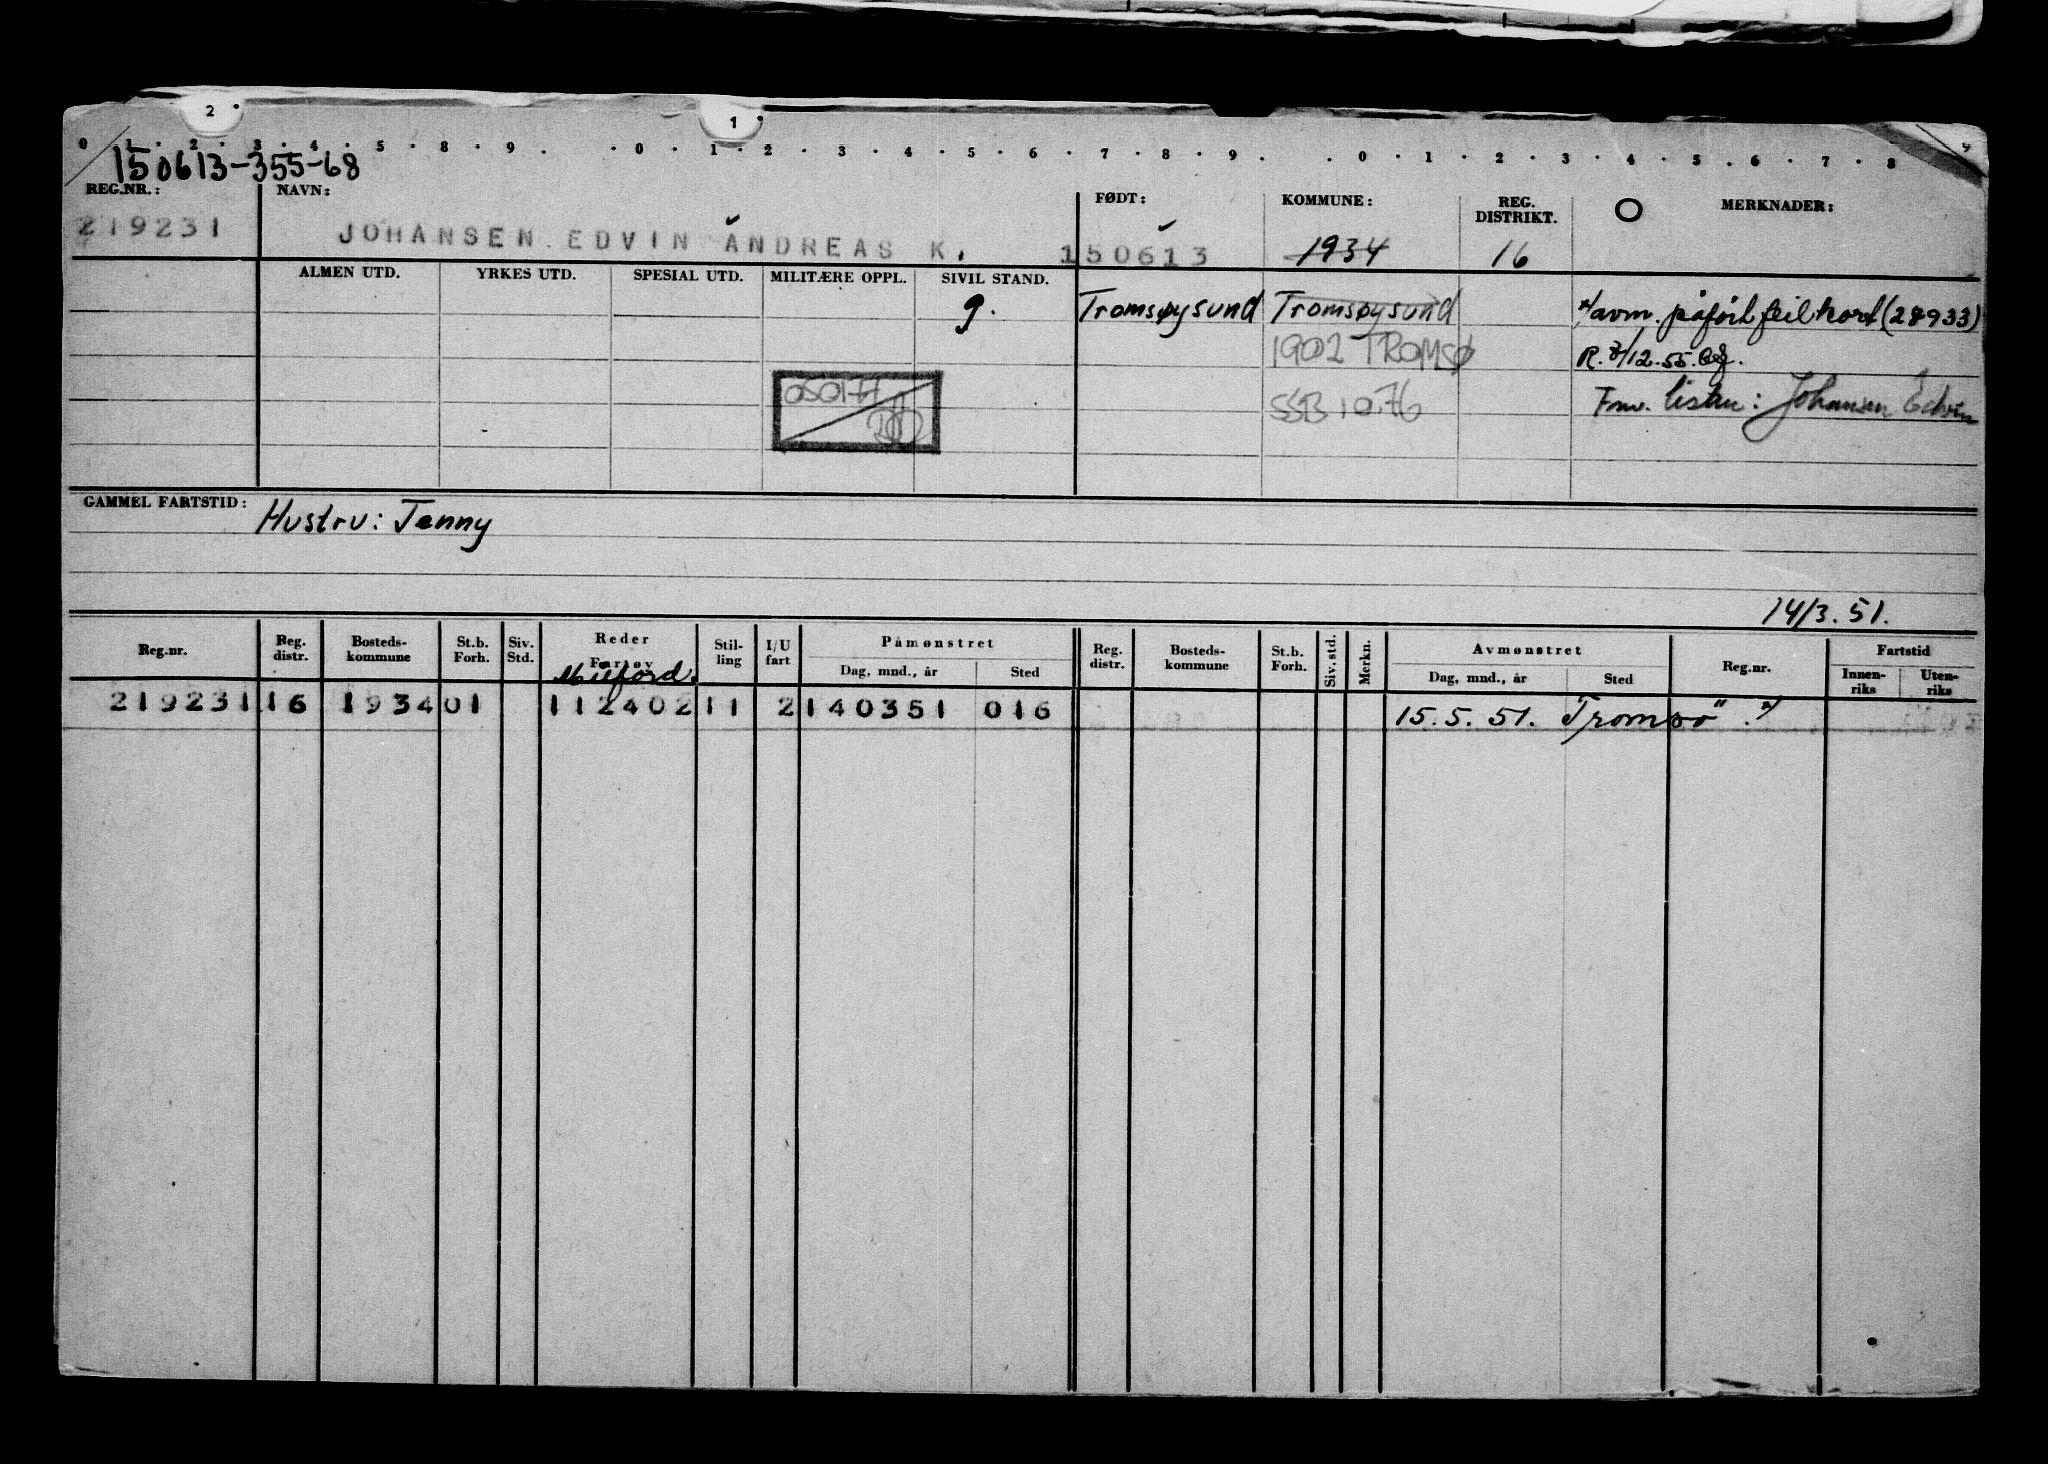 2 1
0 · 1 · 2 · 3 · 4 · 5 · 8 · 9 · 0 · 1 · 2 · 3 · 4 · 5 · 6 · 7 · 8 · 9 · 0 · 1 · 2 · 3 · 4 · 5 · 6 · 7 · 8 · 9
150613-355-68
REG.NR.: NAVN: FØDT: KOMMUNE: REG. DISTRIKT. O MERKNADER:
219231 JOHANSEN EDVIN ANDREAS K. 150613 1934 16
ALMEN UTD. YRKES UTD. SPESIAL UTD. MILITÆRE OPPL. SIVIL STAND.
g. Tromsøysund Tromsøysund */avm. påført feil kort (28933)
1902 TROMSØ R. 7/12.55.
050177 SSB 10.76 Fmv. listen: Johansen Edvin
GAMMEL FARTSTID: Hustru: Jenny
14/3.51.
Reg.nr. Reg. distr. Bosteds-kommune St.b. Forh. Siv. Std. Reder Fartøy Stil-ling I/U fart Påmønstret Dag, mnd., år Sted Reg. distr. Bosteds-kommune St.b. Forh. Siv. std. Merkn. Avmønstret Dag, mnd., år Sted Reg.nr. Fartstid Innen-riks Uten-riks
Milford.
219231 16 1934 01 112402 11 2 140351 016 15.5.51. Tromsö" . */